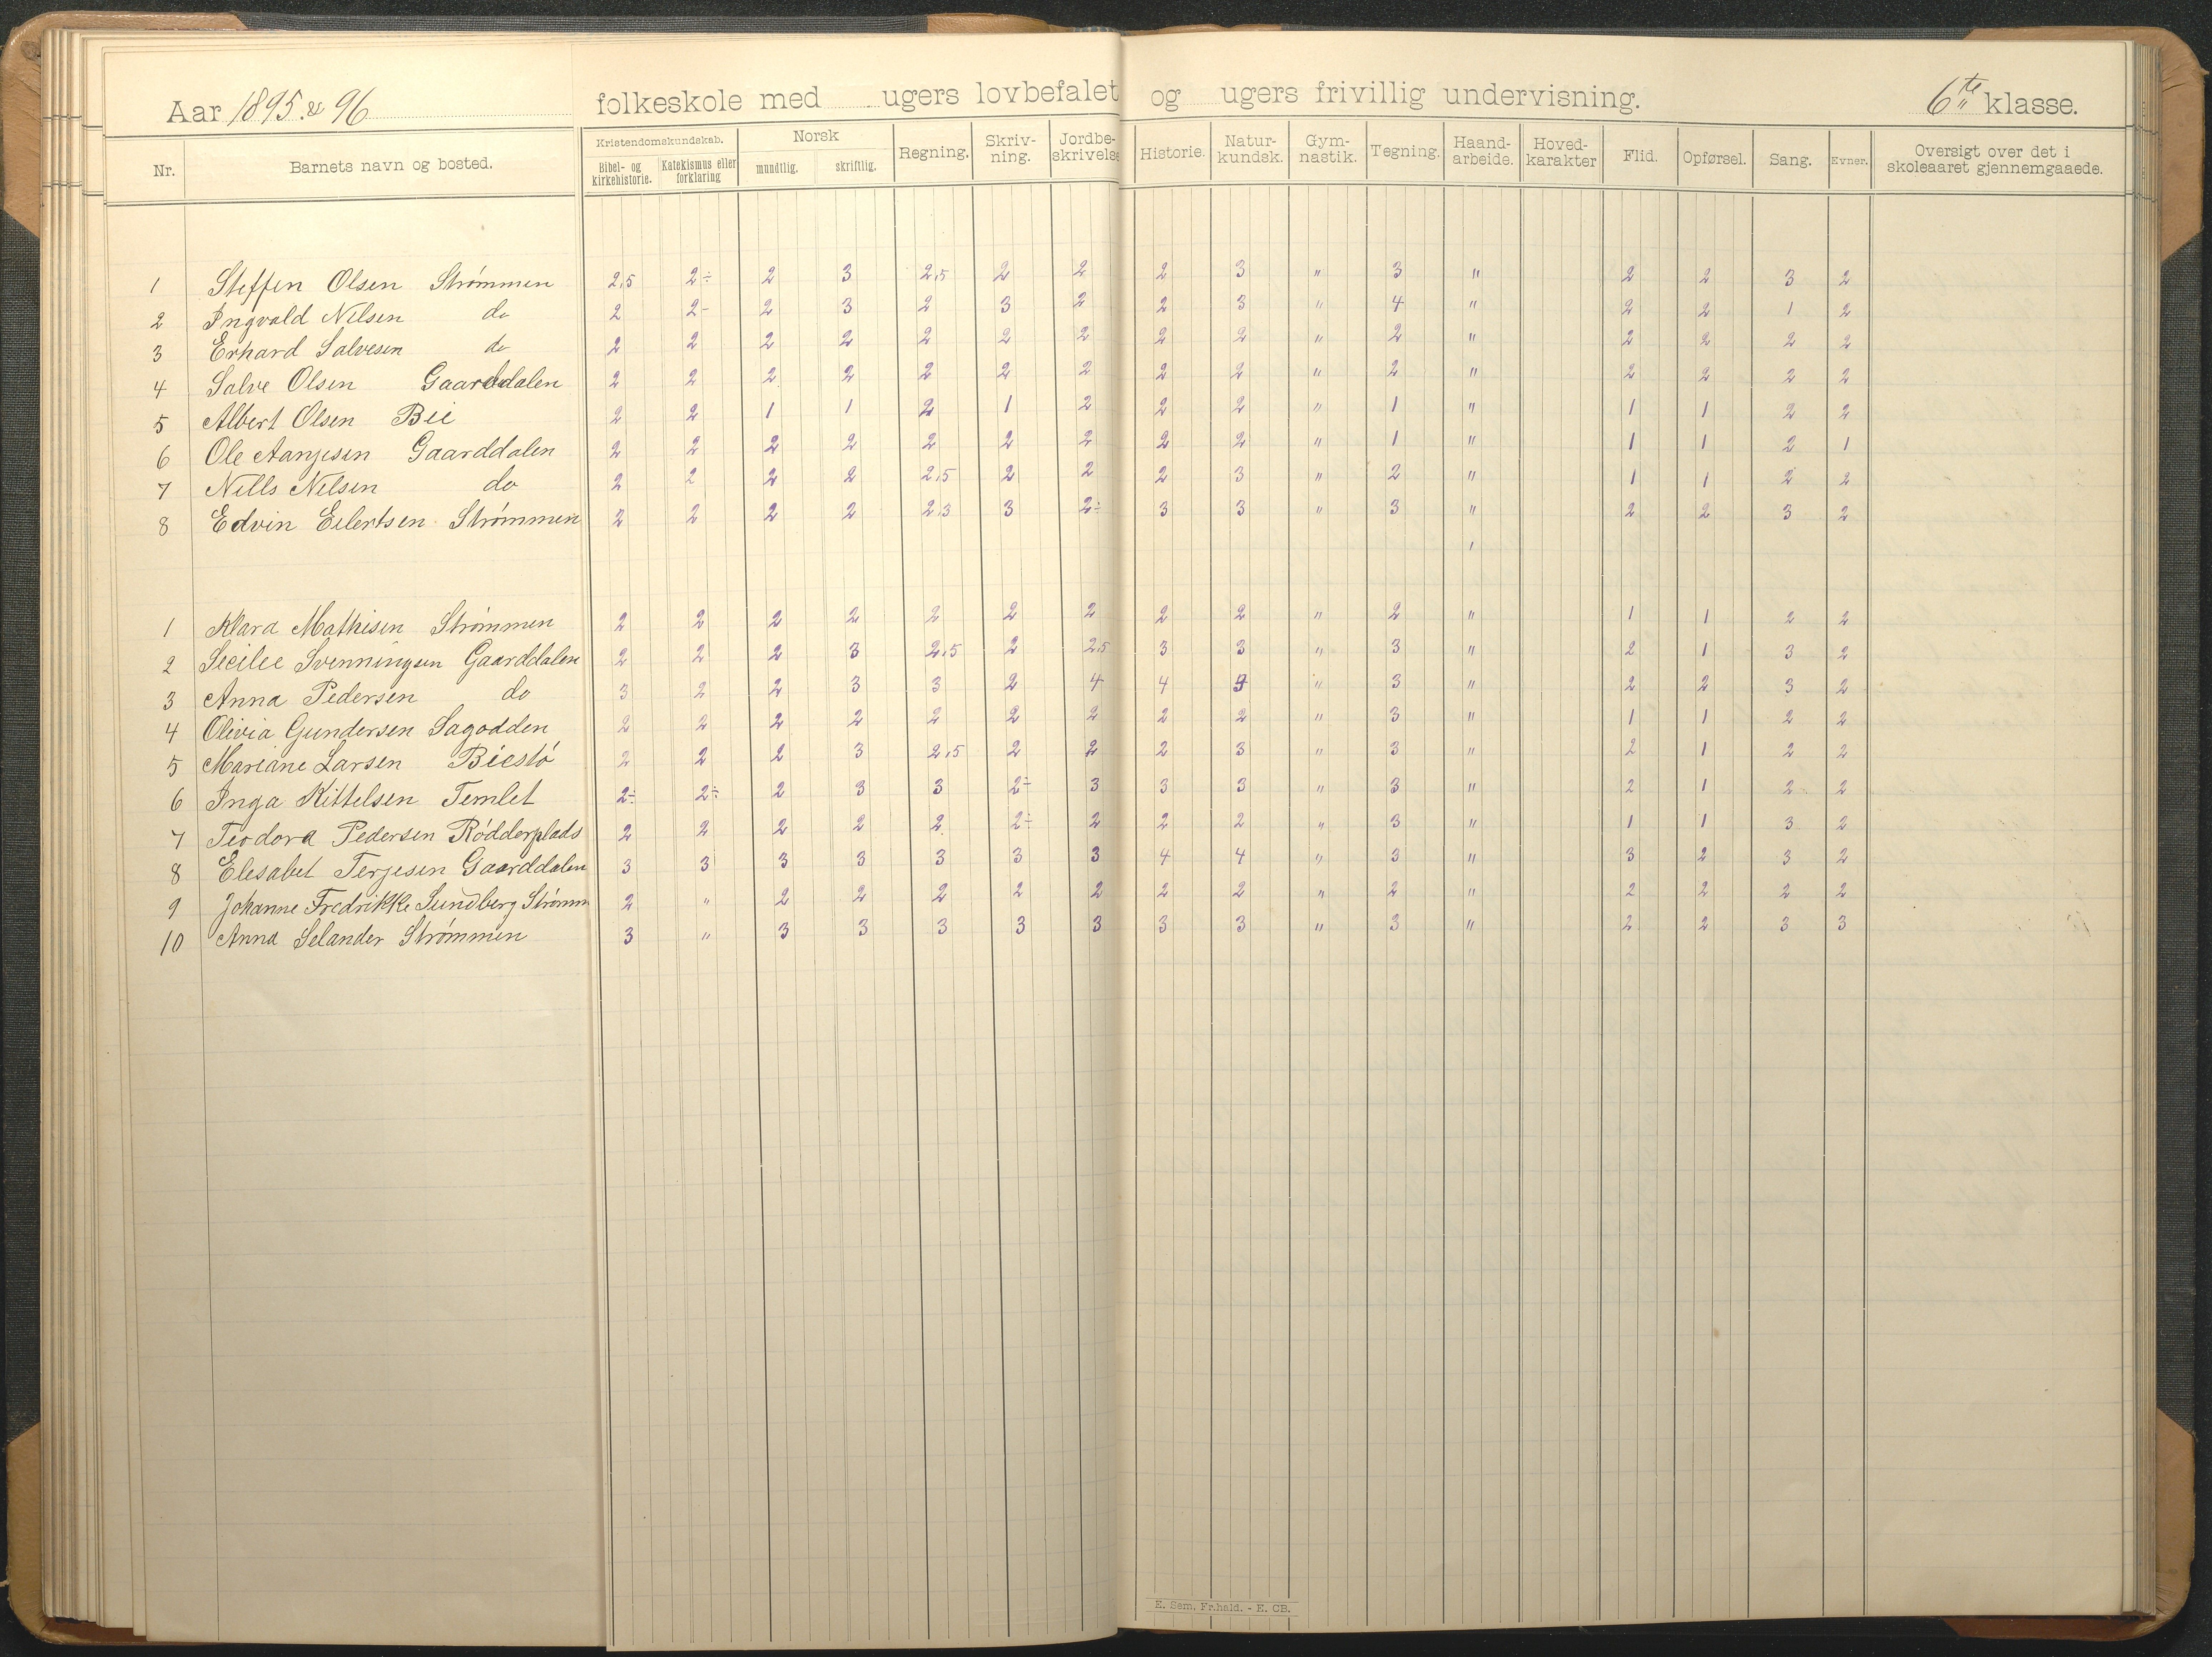 Aar 1895 & 96 folkeskole med ugers lovbefalet og ugers frivillig undervisning. 6te klasse.
Nr. Barnets navn og bosted. Kristendomskundskab. Bibel- og kirkehistorie. Katekismus eller forklaring Norsk mundtlig. skriftlig. Regning. Skriv-ning. Jordbe-skrivelse Historie. Natur-kundsk. Gym-nastik. Tegning. Haand-arbeide. Hoved-karakter Flid. Opførsel. Sang. Evner. Oversigt over det i skoleaaret gjennemgaaede.
1 Steffen Olsen Strømmen 2,5 2÷ 2 3 2,5 2 2 2 3 " 3 " 2 2 3 2
2 Ingvald Nilsen do 2 2- 2 3 2 3 2 2 3 " 4 " 2 2 1 2
3 Erhard Salvesen do 2 2 2 2 2 2 2 2 2 " 2 " 2 2 2 2
4 Salve Olsen Gaarddalen 2 2 2 2 2 2 2 2 2 " 2 " 2 2 2 2
5 Albert Olsen Bie 2 2 1 1 2 1 2 2 2 " 1 " 1 1 2 2
6 Ole Aanjesen Gaarddalen 2 2 2 2 2 2 2 2 2 " 1 " 1 1 2 1
7 Nills Nilsen do 2 2 2 2 2,5 2 2 2 3 " 2 " 1 1 2 2
8 Edvin Eilertsen Strømmen 2 2 2 2 2,3 3 2÷ 3 3 " 3 " 2 2 3 2
1 Klara Mathisen Strømmen 2 2 2 2 2 2 2 2 2 " 2 " 1 1 2 2
2 Secilie Svenningsen Gaarddalen 2 2 2 3 2,5 2 2,5 3 3 " 3 " 2 1 3 2
3 Anna Pedersen do 3 2 2 3 3 2 4 4 " 3 " 2 2 3 2
4 Olivia Gundersen Sagodden 2 2 2 2 2 2 2 2 2 " 3 " 1 1 2 2
5 Mariane Larsen Biestø 2 2 2 3 2,5 2 2 2 3 " 3 " 2 1 2 2
6 Inga Kittelsen Temlet 2÷ 2÷ 2 3 3 2÷ 3 3 3 " 3 " 2 1 2 2
7 Teodora Pedersen Rødderplads 2 2 2 2 2 2÷ 2 2 2 " 3 " 1 1 3 2
8 Elesabet Terjesen Gaarddalen 3 3 3 3 3 3 3 4 4 " 3 " 3 2 3 2
9 Johanne Fredrikke Sundberg Strømm 2 " 2 2 2 2 2 2 2 " 2 " 2 2 2 2
10 Anna Selander Strømmen 3 " 3 3 3 3 3 3 3 " 3 " 2 2 3 3
E. Sem, Fr.hald. - E. CB.